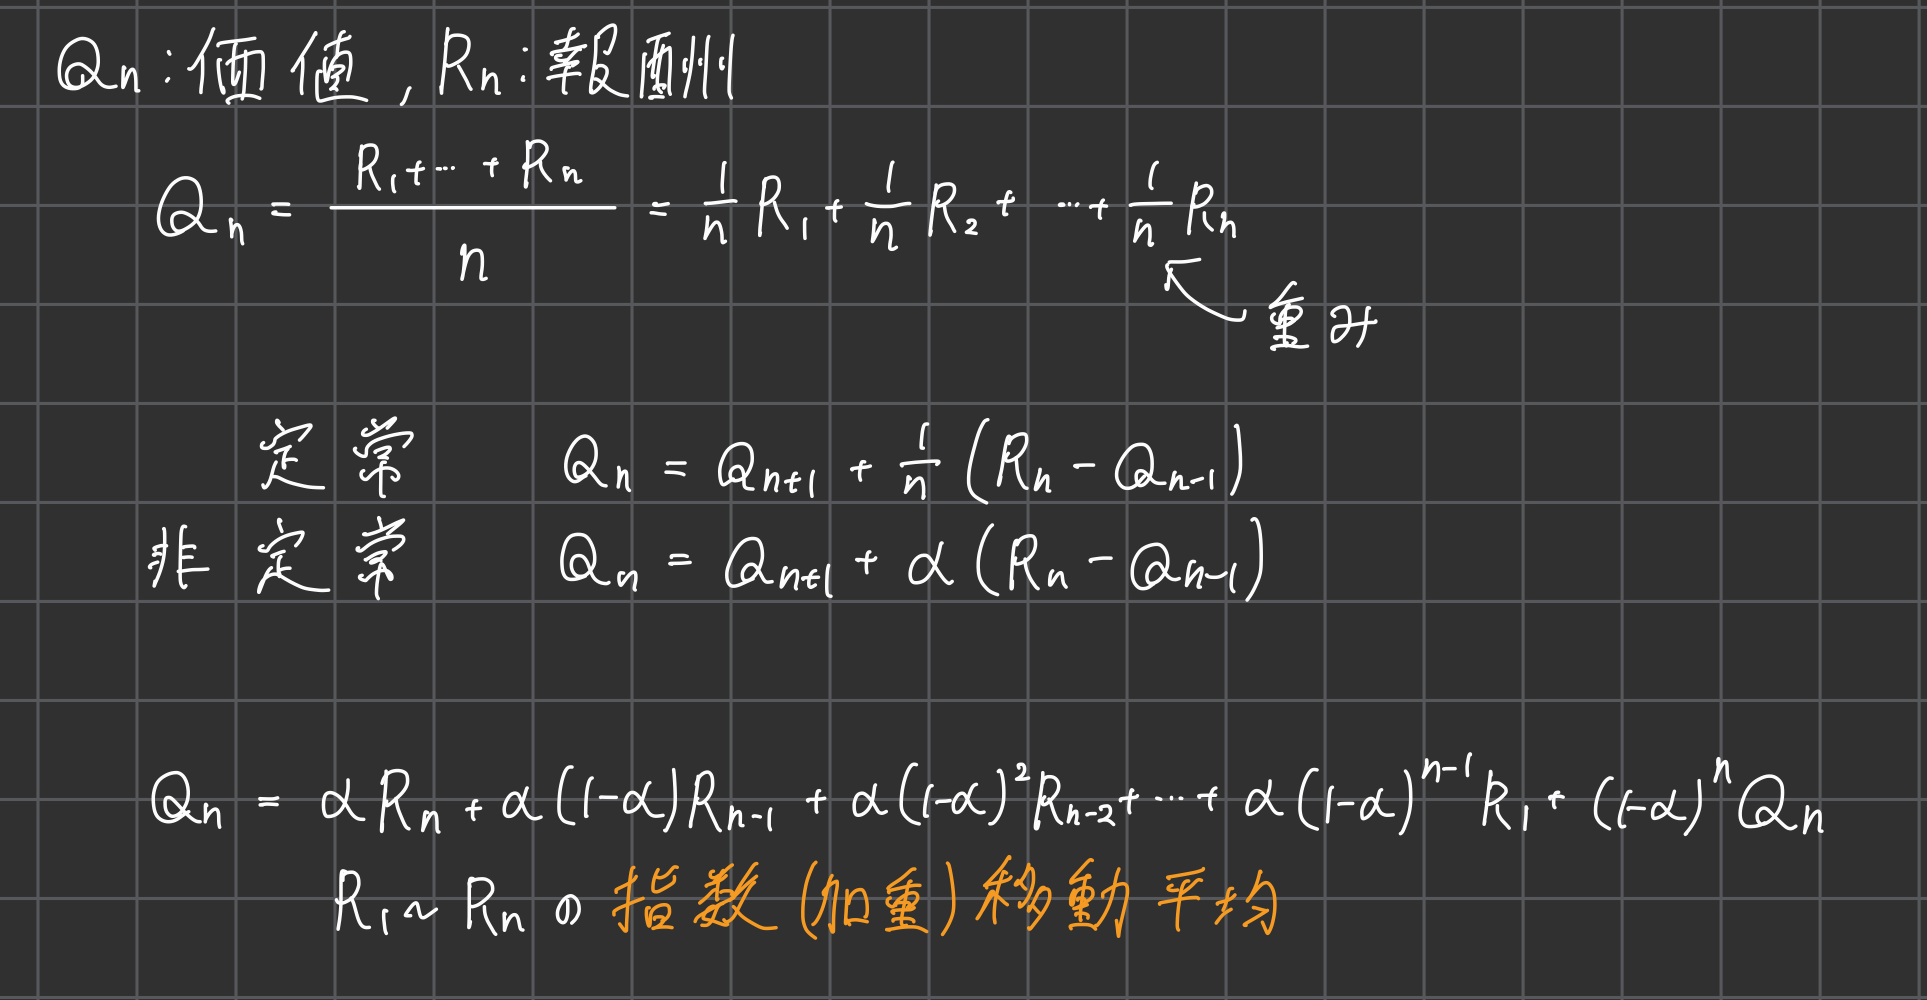 Qn : 価値 , Rn : 報酬
Qn = (R1 + ··· + Rn) / n = 1/n R1 + 1/n R2 + ··· + 1/n Rn
重み
定常 Qn = Qn+1 + 1/n (Rn - Qn-1)
非定常 Qn = Qn+1 + α (Rn - Qn-1)
Qn = αRn + α(1-α)Rn-1 + α(1-α)^2 Rn-2 + ··· + α(1-α)^n-1 R1 + (1-α)^n Qn
R1 ~ Rn の 指数(加重)移動平均